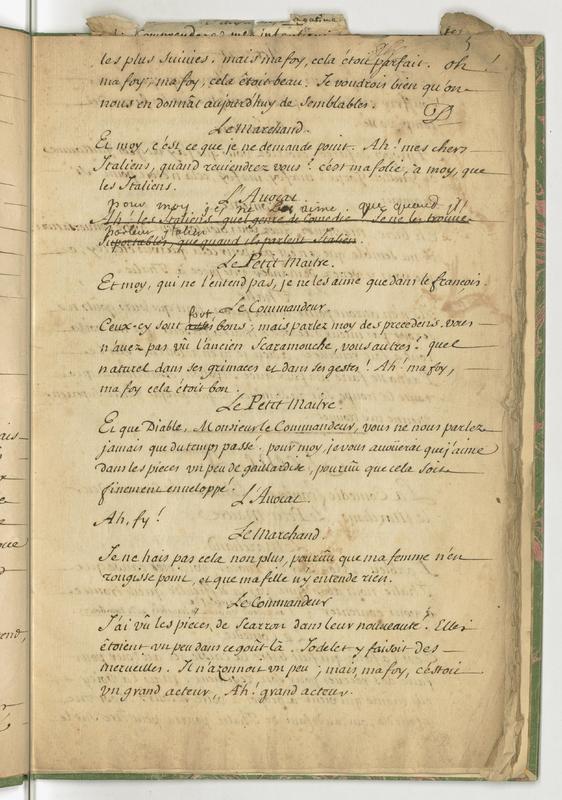 les plus suivies. mais ma foy, cela étoit parfait. oh!
ma foy, ma foy, cela étoit beau. Je voudrois bien qu'on
nous en donnât aujourd'huy de semblables.
Le Marchand.
Et moy, c'est ce que je ne demande point. Ah! mes chers
Italiens, quand reviendrez vous? c'est ma folie, à moy, que
les Italiens.
L'Avocat.
pour moy, je ne les aime que quand ils
Ah! les Italiens, quel genre de Comedie Je ne les trouve
parlent italien
suportables, que quand ils parlent Italien.
Le Petit Maitre.
Et moy, qui ne l'entend pas, je ne les aime que dans le françois.
Le Commandeur.
fort
Ceux-cy sont assés bons; mais parlez moy des precedens. vous
n'avez pas vû l'ancien Scaramouche, vous autres? quel
naturel dans ses grimaces et dans ses gestes! Ah! ma foy,
ma foy cela étoit bon.
Le Petit Maitre.
Et que Diable, Monsieur le Commandeur, vous ne nous parlez
jamais que du temps passé. pour moy, je vous avoüerai que j'aime
dans les pieces un peu de gaillardise, pourvû que cela soit
finement enveloppé.
L'Avocat.
Ah, fy!
Le Marchand.
Je ne hais pas cela non plus, pourvû que ma femme n'en
rougisse point, et que ma fille n'y entende rien.
Le Commandeur
J'ai vû les pieces de Scarron dans leur nouveauté. Elles
étoient un peu dans ce goût là. Jodelet y faisoit des
merveilles. Il nazonnoit un peu; mais, ma foy, c'étoit
un grand acteur, Ah! grand acteur.